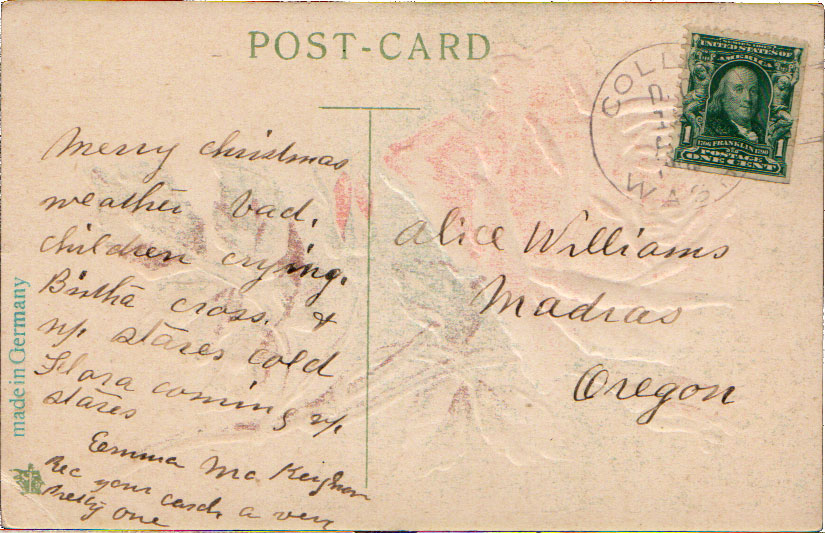 POST-CARD
UNITED STATES OF
AMERICA
1 1
FRANKLIN
POSTAGE
ONE CENT
COLL
WASH
Merry christmas
weather bad.
children crying.
Birtha cross. &
up stares cold
Flora coming up
stares
Emma Mc.
Rec your card. a very
Pretty one
Alice Williams
Madras
Oregon
made in Germany